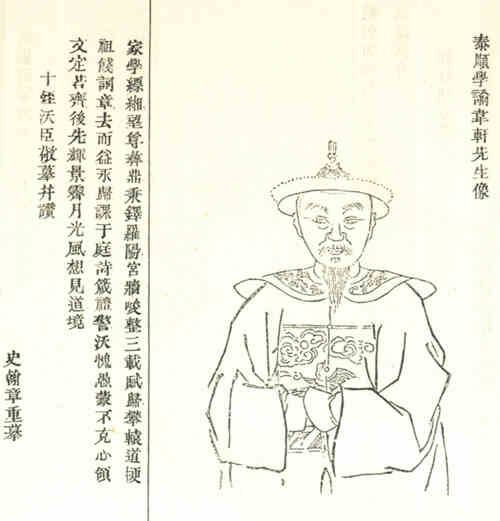 泰順學諭韋軒先生像
家學縹緗望尊彝鼎秉鐸羅陽宮牆峻整三載賦歸攀轅道梗
祖餞詞章去而益永歸課于庭詩箴禮警沃愧愚蒙不克心領
文定若齊後先輝景霽月光風想見道境
十姪沃臣敬摹并讚
史翰章重摹